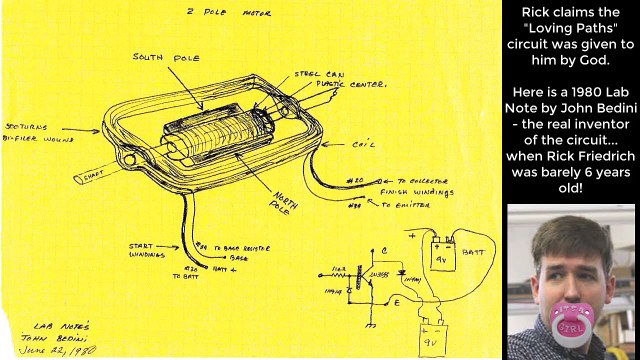 2 POLE MOTOR
SOUTH POLE
STEEL CAN
PLASTIC CENTER.
500 TURNS
BI-FILER WOUND
COIL
SHAFT
#20 TO COLLECTOR
FINISH WINDINGS
TO EMITTER
NORTH
POLE
START
WINDINGS
TO BASE RESISTOR
BASE
#20 BATT +
TO BATT
C
E
+
+ -
9V
BATT
9V
LAB NOTES
JOHN BEDINI
June 22, 1980
Rick claims the
"Loving Paths"
circuit was given to
him by God.
Here is a 1980 Lab
Note by John Bedini
- the real inventor
of the circuit...
when Rick Friedrich
was barely 6 years
old!
IT'S A
GIRL